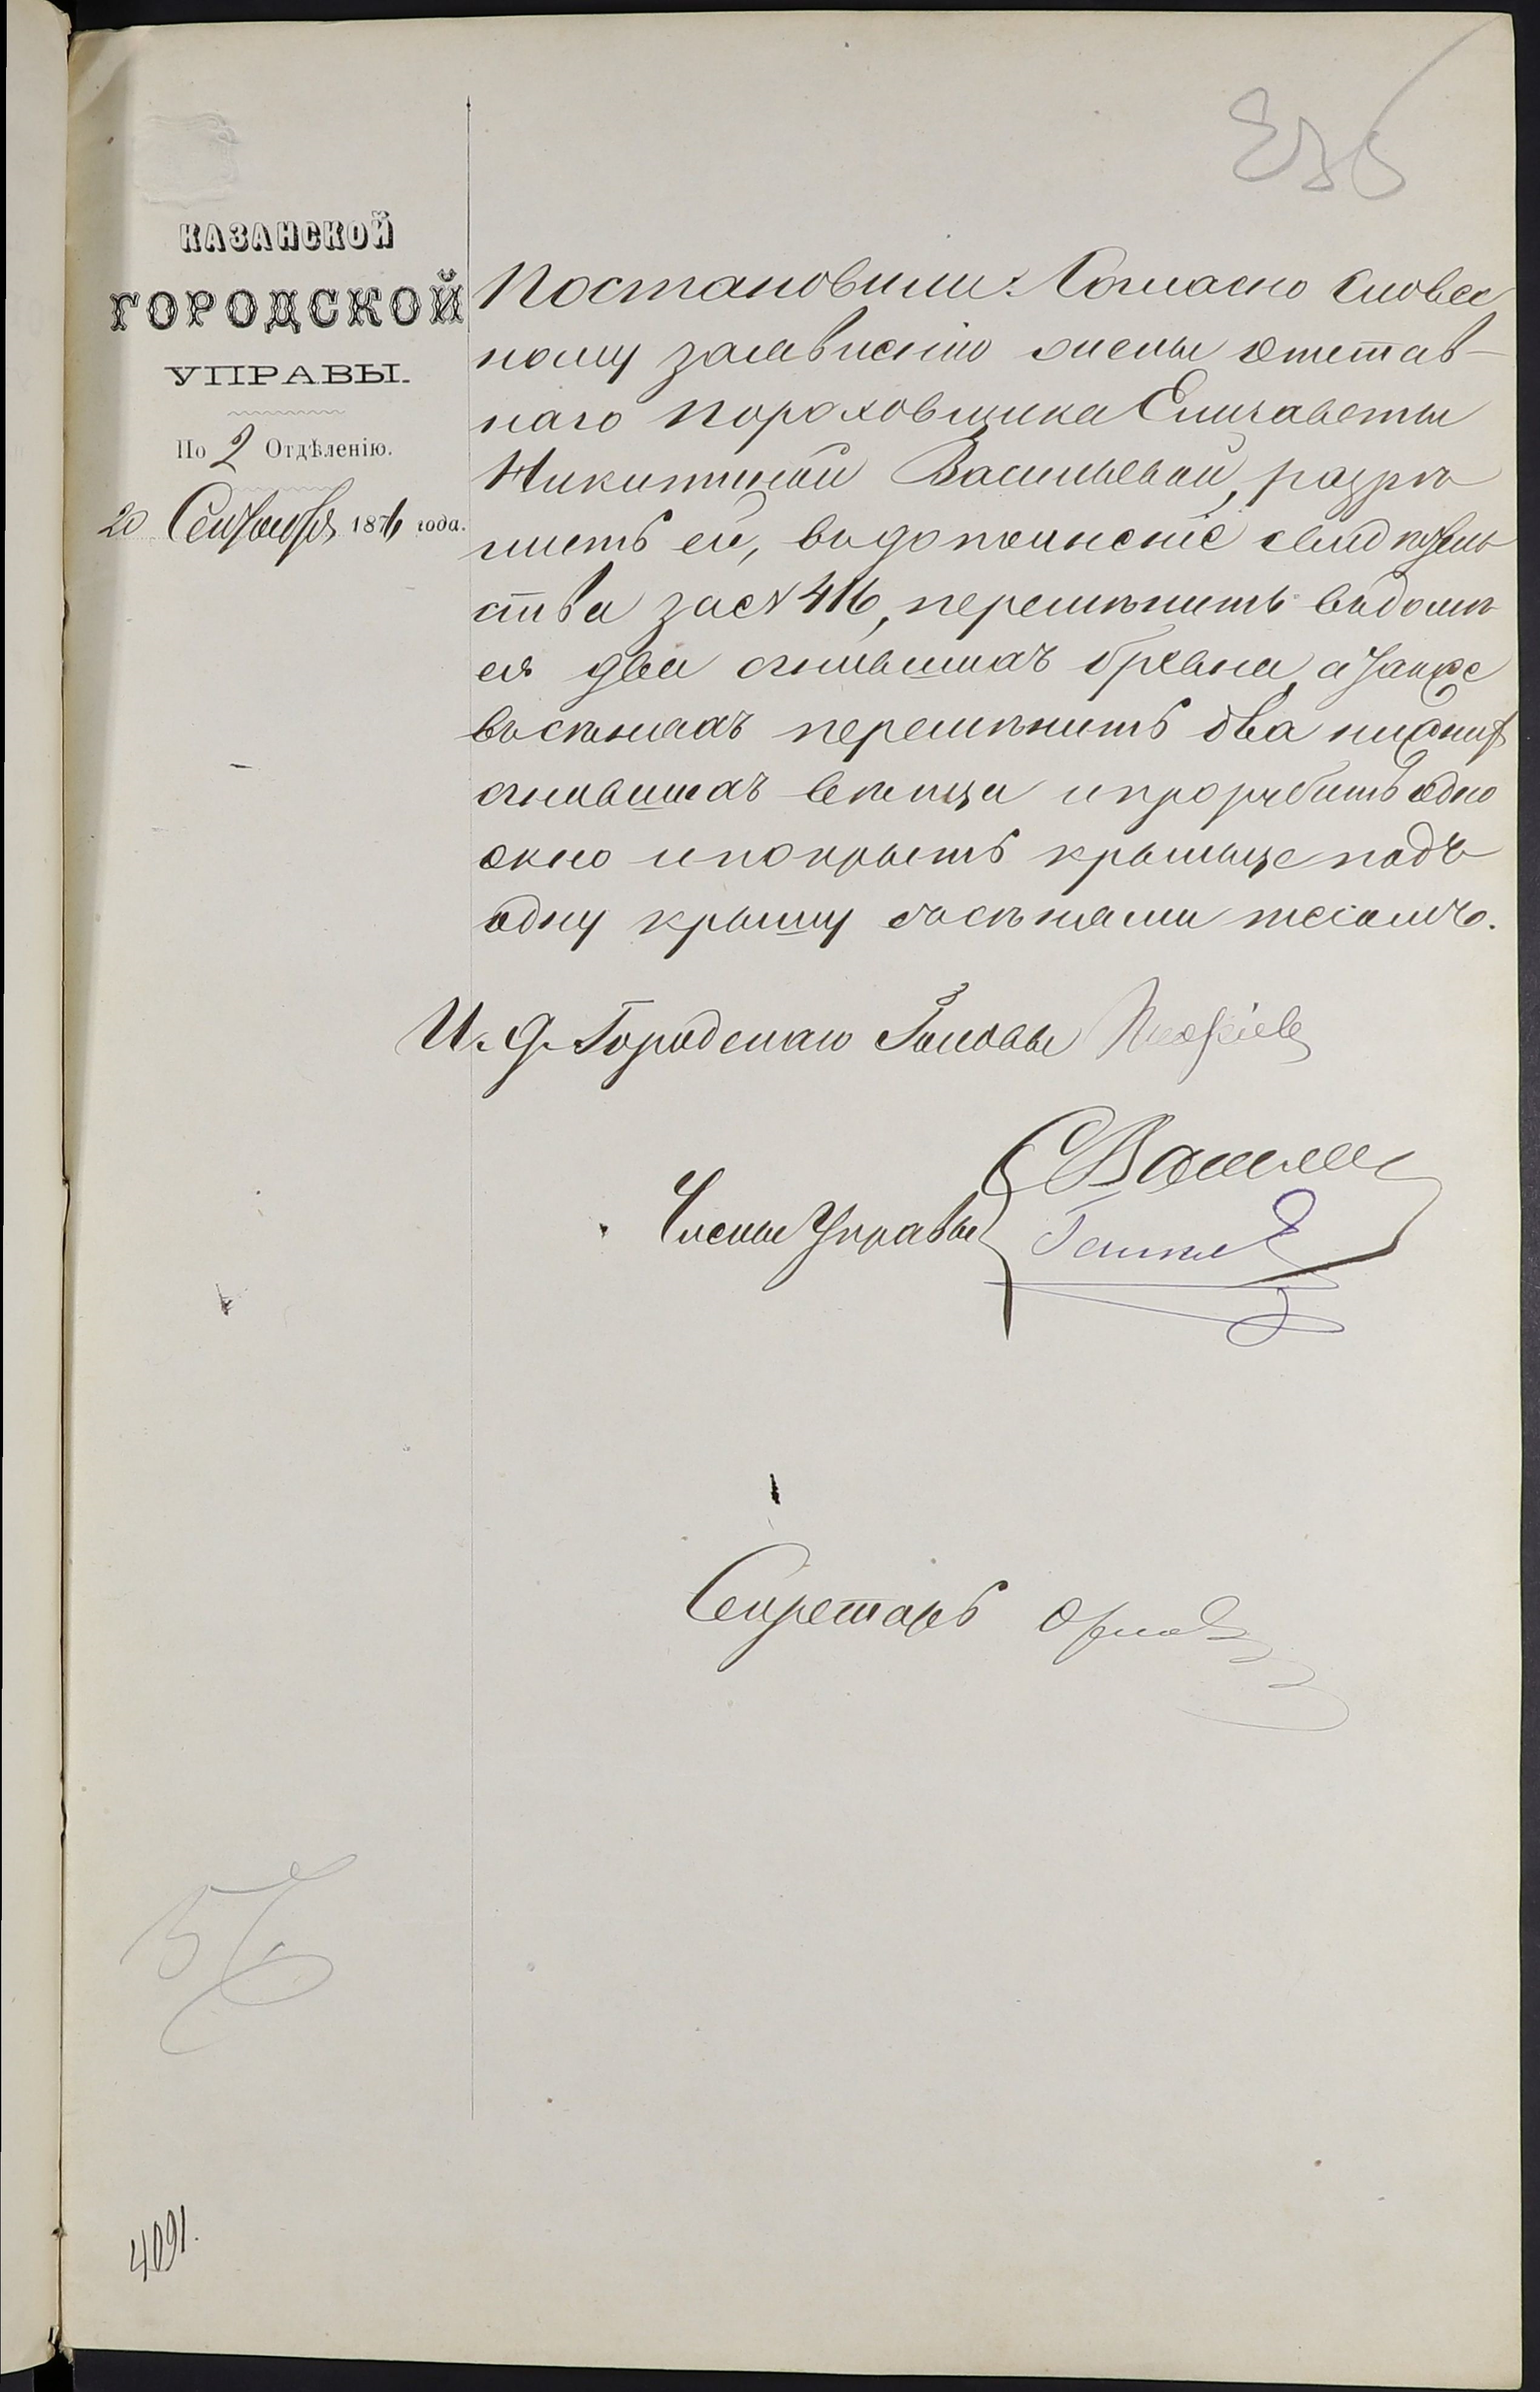 КАЗАНСКОЙ
ГОРОДСКОЙ
УПРАВЫ.
По 2 Отдѣленію.
20 Сентября 1876 года.
Постановили: Согласно словес
ному заявленію жены отстав-
наго пороховщика Елизаветы
Никитиной Васильевой, разрѣ
шить ей, въ дополненіе свидѣтель
ства за № 416, перемѣнить въ домѣ
ея два сгнившихъ бревна, а также
въ сѣняхъ перемѣнить два нижнихъ
сгнившихъ вѣнца и прорубить одно
окно и покрыть крыльце подъ
одну крышу съ сѣнями тесомъ.
И. д. Городскаго Головы
Члены Управы
Секретарь Орлов
4091.